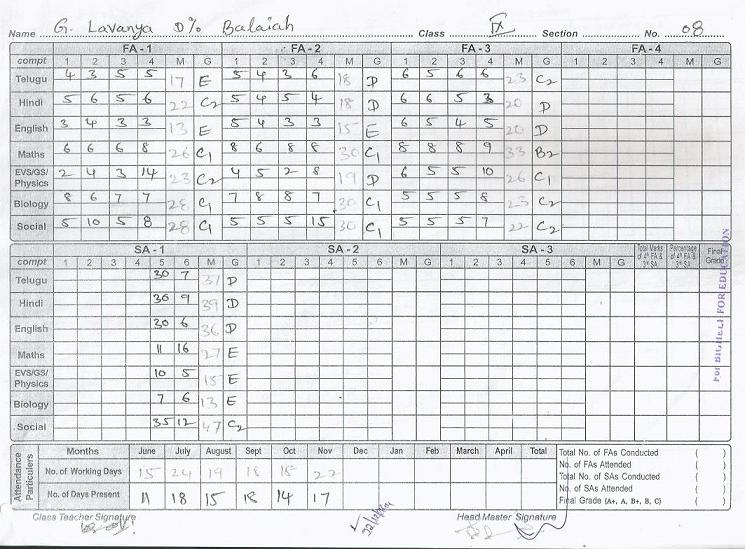 Name G. Lavanya D% Balaiah Class IX Section No. 08
FA - 1 FA - 2 FA - 3 FA - 4
compt 1 2 3 4 M G 1 2 3 4 M G 1 2 3 4 M G 1 2 3 4 M G
Telugu 4 3 5 5 17 E 5 4 3 6 18 D 6 5 6 6 23 C2
Hindi 5 6 5 6 22 C2 5 4 5 4 18 D 6 6 5 3 20 D
English 3 4 3 3 13 E 5 4 3 3 15 E 6 5 4 5 20 D
Maths 6 6 6 8 26 C1 8 6 8 8 30 C1 8 8 8 9 33 B2
EVS/GS/ Physics 2 4 3 14 23 C2 4 5 2 8 19 D 6 5 5 10 26 C1
Biology 8 6 7 7 28 C1 7 8 8 7 30 C1 5 5 5 8 23 C2
Social 5 10 5 8 28 C1 5 5 5 15 30 C1 5 5 5 7 22 C2
SA - 1 SA - 2 SA - 3 Total Marks of 4th FA & 3rd SA Percentage of 4th FA & 3rd SA Final Grade
compt 1 2 3 4 5 6 M G 1 2 3 4 5 6 M G 1 2 3 4 5 6 M G
Telugu 30 7 37 D
Hindi 30 9 39 D
English 30 6 36 D
Maths 11 16 27 E
EVS/GS/ Physics 10 5 15 E
Biology 7 6 13 E
Social 35 12 47 C2
For BIGHELP FOR EDUCATION
Attendance Particulers
Months June July August Sept Oct Nov Dec Jan Feb March April Total
No. of Working Days 15 24 19 18 15 22
No. of Days Present 11 18 15 18 14 17
Total No. of FAs Conducted ( )
No. of FAs Attended ( )
Total No. of SAs Conducted ( )
No. of SAs Attended ( )
Final Grade (A+, A, B+, B, C) ( )
Class Teacher Signature Head Master Signature